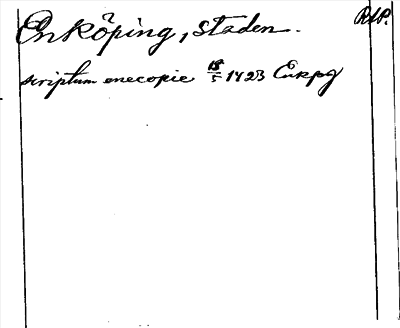 Enköping, staden. RAP.
scriptum enecopie 18/5 1423 Enkpg